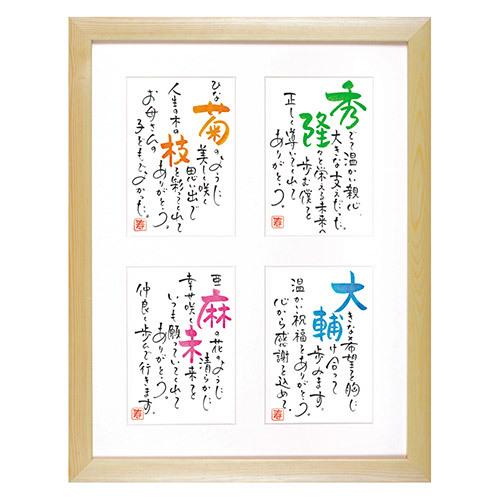 秀でて温かい親心
大きな支えだった
隆々と栄える未来へ
歩む僕を
正しく導いてくれて
ありがとう。
ひな菊のように
美しく咲く
思い出で
人生の木の枝を彩ってくれて
ありがとう。
お母さんの
子どもで、よかった。
大きな希望を胸に
輔け合って
歩みます。
温かい祝福をありがとう。
心から感謝を込めて。
亜麻の花のように
清らかに
幸せ咲く未来を
いつも願っていてくれて
ありがとう。
仲良く歩んで行きます。